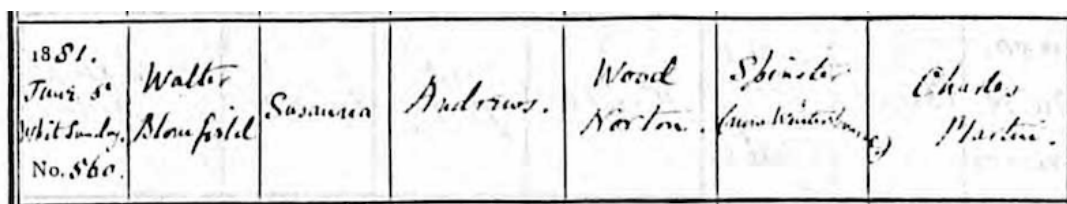 1881.
June 5th
Whit Sunday.
No. 560.
Walter
Blomfield
Susanna
Andrews.
Wood
Norton.
Spinster
(now
Charles
Martin.